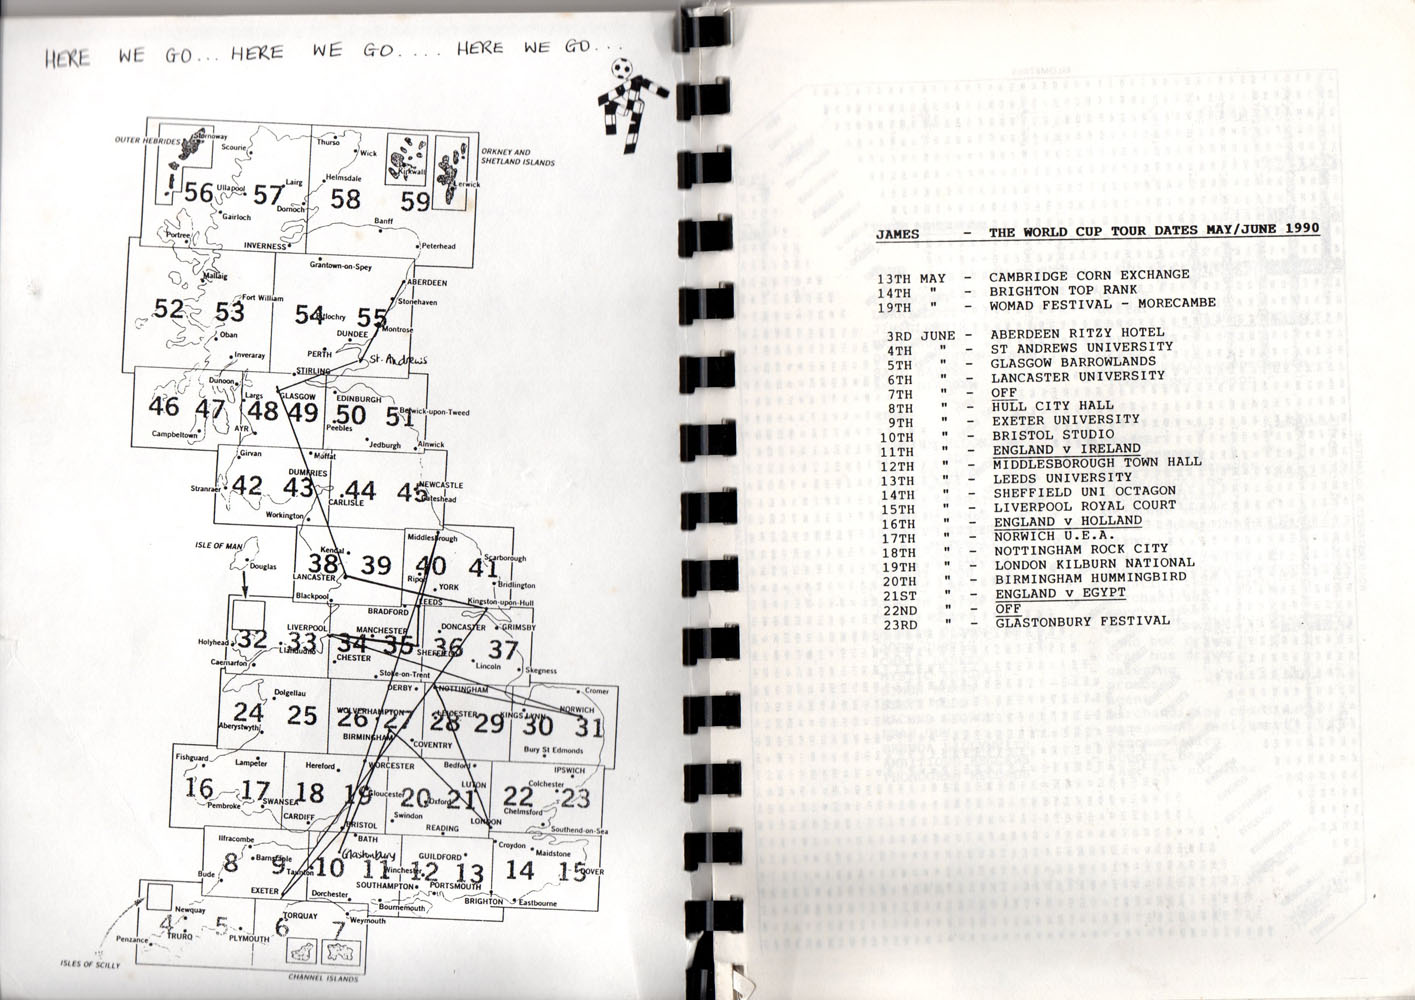 HERE WE GO... HERE WE GO.... HERE WE GO...
OUTER HEBRIDES
Stornoway
Scourie
Thurso
Wick
Kirkwall
Lerwick
ORKNEY AND
SHETLAND ISLANDS
56
Ullapool
57
Lairg
Helmsdale
58
59
Dornoch
Gairloch
Banff
Portree
INVERNESS
Peterhead
Grantown-on-Spey
Mallaig
ABERDEEN
Fort William
Stonehaven
52
53
54
Pitlochry
55
Montrose
Oban
DUNDEE
Inveraray
PERTH
St. Andrews
STIRLING
Dunoon
Largs
GLASGOW
EDINBURGH
46
47
48
49
50
51
Berwick-upon-Tweed
Campbeltown
AYR
Peebles
Jedburgh
Alnwick
Girvan
Moffat
DUMFRIES
Stranraer
42
43
44
45
NEWCASTLE
Gateshead
CARLISLE
Workington
Middlesbrough
ISLE OF MAN
Douglas
Kendal
38
39
40
41
Scarborough
LANCASTER
Ripon
YORK
Bridlington
Blackpool
BRADFORD
LEEDS
Kingston-upon-Hull
LIVERPOOL
MANCHESTER
DONCASTER
GRIMSBY
Holyhead
32
33
34
35
36
37
Llandudno
CHESTER
SHEFFIELD
Lincoln
Skegness
Caernarfon
Stoke-on-Trent
DERBY
NOTTINGHAM
Cromer
Dolgellau
24
25
WOLVERHAMPTON
26
27
28
LEICESTER
29
KINGS LYNN
30
NORWICH
31
Aberystwyth
BIRMINGHAM
COVENTRY
Bury St Edmonds
Fishguard
Lampeter
Hereford
WORCESTER
Bedford
IPSWICH
16
17
18
19
Gloucester
20
Oxford
21
LUTON
22
Colchester
23
Pembroke
SWANSEA
CARDIFF
Swindon
Chelmsford
BRISTOL
READING
LONDON
Southend-on-Sea
Ilfracombe
BATH
Croydon
Maidstone
8
Barnstaple
9
Taunton
10
Glastonbury
11
Winchester
12
GUILDFORD
13
14
15
DOVER
Bude
EXETER
Dorchester
SOUTHAMPTON
PORTSMOUTH
Bournemouth
BRIGHTON
Eastbourne
Newquay
4
5
6
TORQUAY
7
Weymouth
Penzance
TRURO
PLYMOUTH
ISLES OF SCILLY
CHANNEL ISLANDS
JAMES - THE WORLD CUP TOUR DATES MAY/JUNE 1990
13TH MAY - CAMBRIDGE CORN EXCHANGE
14TH " - BRIGHTON TOP RANK
19TH " - WOMAD FESTIVAL - MORECAMBE
3RD JUNE - ABERDEEN RITZY HOTEL
4TH " - ST ANDREWS UNIVERSITY
5TH " - GLASGOW BARROWLANDS
6TH " - LANCASTER UNIVERSITY
7TH " - OFF
8TH " - HULL CITY HALL
9TH " - EXETER UNIVERSITY
10TH " - BRISTOL STUDIO
11TH " - ENGLAND v IRELAND
12TH " - MIDDLESBOROUGH TOWN HALL
13TH " - LEEDS UNIVERSITY
14TH " - SHEFFIELD UNI OCTAGON
15TH " - LIVERPOOL ROYAL COURT
16TH " - ENGLAND v HOLLAND
17TH " - NORWICH U.E.A.
18TH " - NOTTINGHAM ROCK CITY
19TH " - LONDON KILBURN NATIONAL
20TH " - BIRMINGHAM HUMMINGBIRD
21ST " - ENGLAND v EGYPT
22ND " - OFF
23RD " - GLASTONBURY FESTIVAL